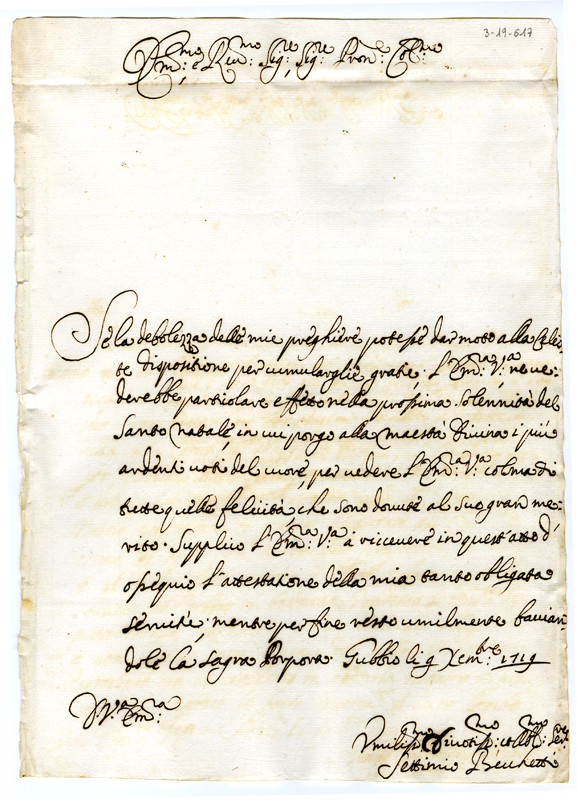 3-19-617
Em:mo e Reu:mo Sig:re Sig:re Pron:e Col:mo
Se la debolezza delle mie preghiere potesse dar moto alla Cele-
te dispositione per cumularglie gratie. L'Em:a V:a ne ve-
derebbe particolare effetto nella prossima solennità del
Santo natale, in cui porgo alla maestà Divina i più
ardenti voti del cuore, per vedere L'Em:a V:a colma di
tutte quelle felicità, che sono dovute al suo gran me-
rito. Supplico L'Em:a V:a à riccevere in quest'atto d'
ossequio l'attestatione della mia tanto obligata
servitù. mentre per fine resto umilmente baccian-
dole la sagra Porpora. Gubbio li 9 Xem:bre 1719
D. V:a Em:a
Vmiliss:mo Diuotiss:mo et Obl:mo Ser:re
Settimio Beuchetti